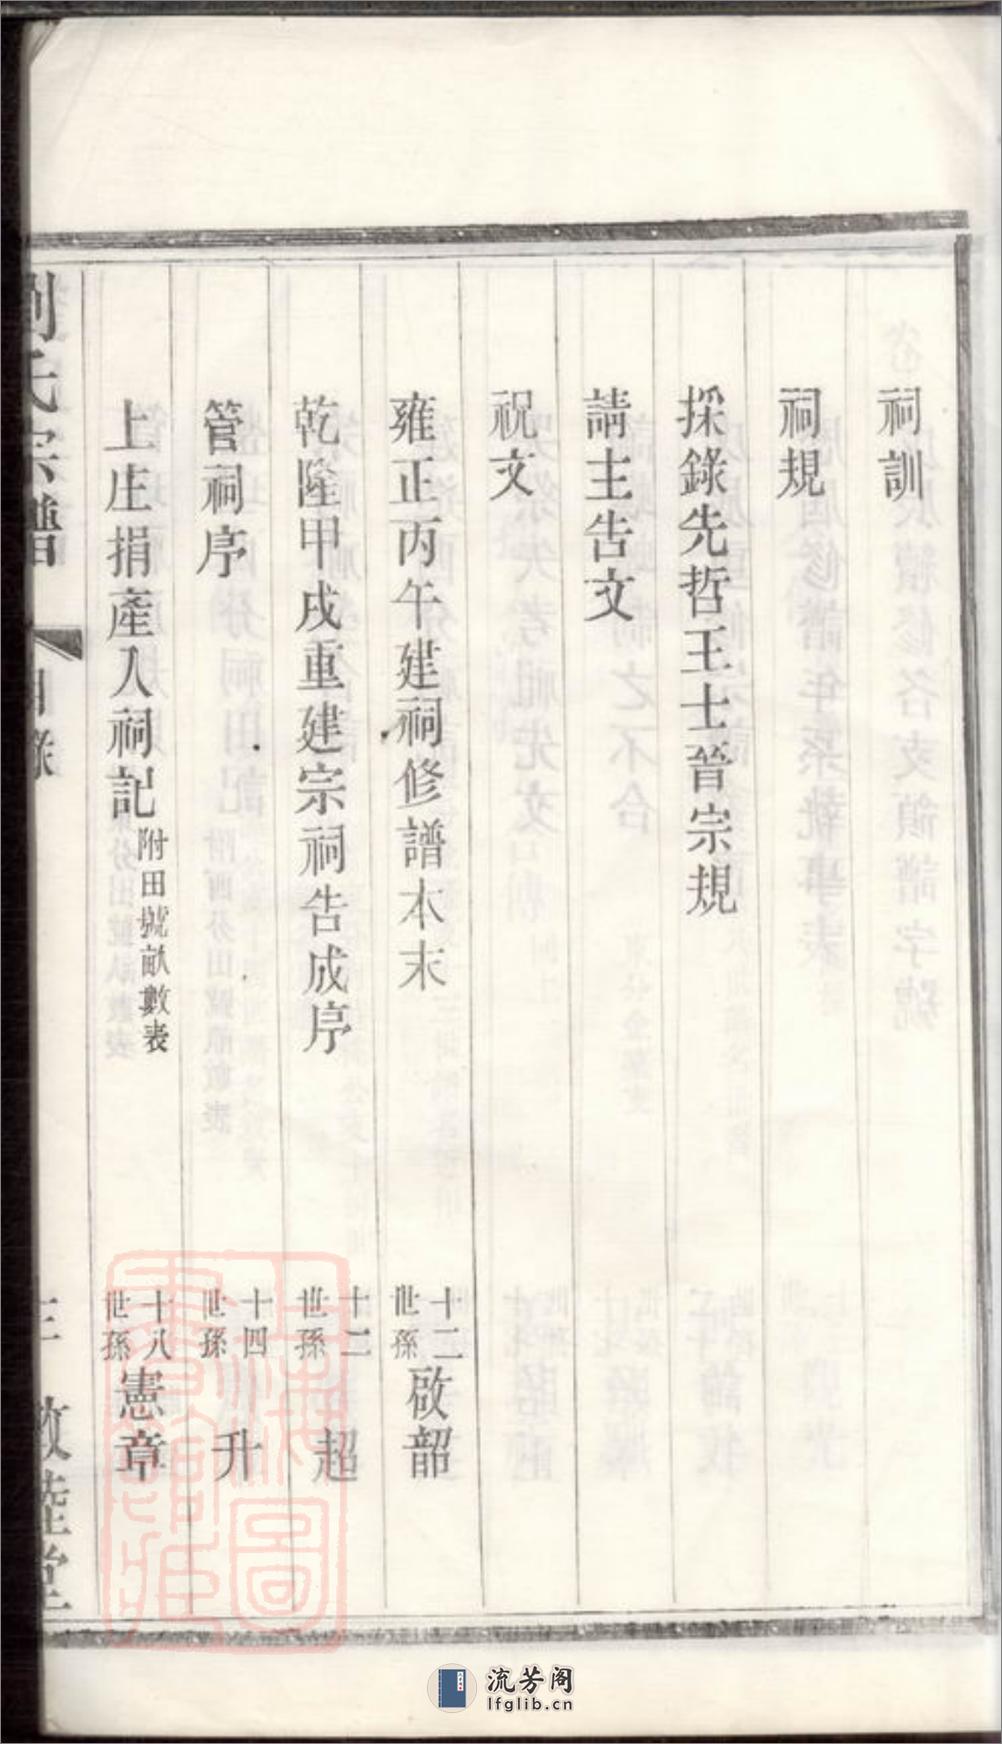 祠訓
祠規
採錄先哲王士晉宗規
請主告文
祝文
雍正丙午建祠修譜本末 十二世孫 啟韶
乾隆甲戌重建宗祠告成序 十二世孫 超
管祠序 十四世孫 升
上庄捐產入祠記 附田號畝數表 十八世孫 憲章
劉氏宗譜 目錄 三 敦睦堂
上海圖書館藏
流芳阁
lfglib.cn